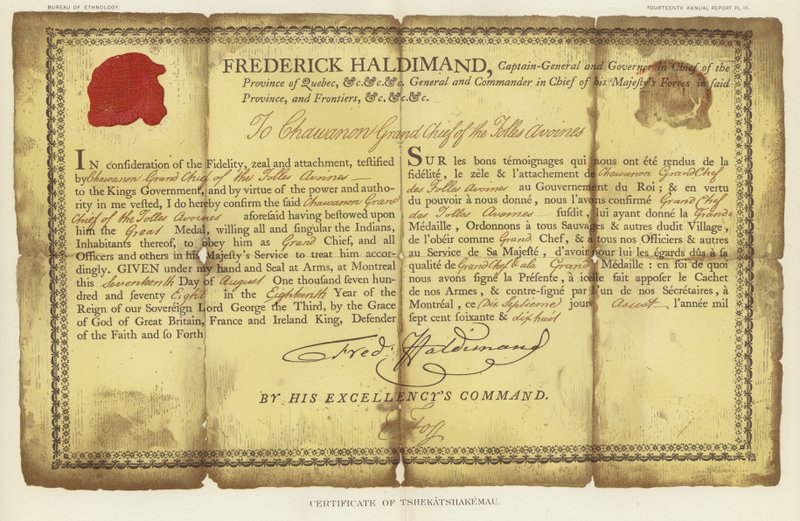 BUREAU OF ETHNOLOGY.
FOURTEENTH ANNUAL REPORT PL. III
FREDERICK HALDIMAND, Captain-General and Governor in Chief of the
Province of Quebec, &c. &c. &c. General and Commander in Chief of his Majeſty's Forces in ſaid
Province, and Frontiers, &c. &c. &c.
To Chawanon Grand Chief of the Folles Avoines
IN conſideration of the Fidelity, zeal and attachment, teſtified
by Chawanon Grand Chief of the Folles Avoines
to the Kings Government, and by virtue of the power and autho-
rity in me veſted, I do hereby confirm the ſaid Chawanon Grand
Chief of the Folles Avoines aforeſaid having beſtowed upon
him the Great Medal, willing all and ſingular the Indians,
Inhabitants thereof, to obey him as Grand Chief, and all
Officers and others in his Majeſty's Service to treat him accor-
dingly. GIVEN under my hand and Seal at Arms, at Montreal
this Seventeenth Day of August One thouſand ſeven hun-
dred and ſeventy Eight in the Eighteenth Year of the
Reign of our Sovereign Lord George the Third, by the Grace
of God of Great Britain, France and Ireland King, Defender
of the Faith and ſo Forth
SUR les bons témoignages qui nous ont été rendus de la
fidélité, le zèle & l'attachement de Chawanon Grand Chef
des Folles Avoines au Gouvernement du Roi; & en vertu
du pouvoir à nous donné, nous l'avons confirmé Grand Chef
des Folles Avoines ſuſdit, lui ayant donné la Grande
Médaille, Ordonnons à tous Sauvages & autres dudit Village,
de l'obéir comme Grand Chef, & à tous nos Officiers & autres
au Service de Sa Majeſté, d'avoir pour lui les égards dûs à ſa
qualité de Grand Chef & a la Grand Médaille: en foi de quoi
nous avons ſigné la Préſente, à icelle fait appoſer le Cachet
de nos Armes, & contre-ſigné par l'un de nos Sécretaires, à
Montréal, ce Dix Septieme jour Aoust l'année mil
ſept cent ſoixante & dix huit
Fred: Haldimand
BY HIS EXCELLENCY'S COMMAND.
Foy
CERTIFICATE OF TSHEKÂTSHAKĒMAU.